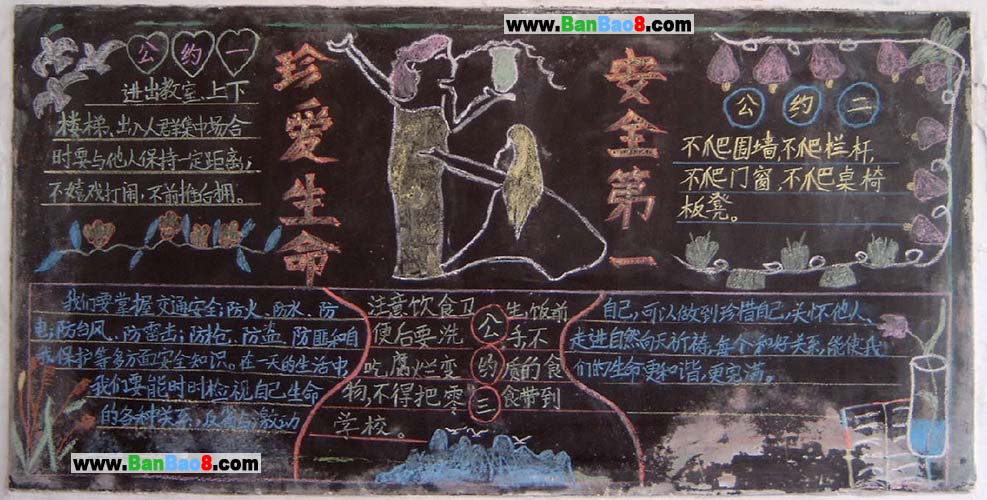 www.BanBao8.com
公约一
进出教室、上下
楼梯、出入人群集中场合
时要与他人保持一定距离;
不嬉戏打闹,不前推后拥。
珍爱生命
安全第一
公约二
不爬围墙,不爬栏杆,
不爬门窗,不爬桌椅
板凳。
我们要掌握交通安全;防火、防水、防
电;防台风、防雷击;防抢、防盗、防匪和自
我保护等多方面安全知识。在一天的生活中,
我们要能时时检视自己生命
的各种关系,
公约三
注意饮食卫生,饭前
便后要洗手,不
吃腐烂变质的食
物,不得把零食带到
学校。
自己,可以做到珍惜自己,关怀他人、
走进自然向天祈祷,每个和好关系,能使我
们的生命更和谐,更完满。
www.BanBao8.com